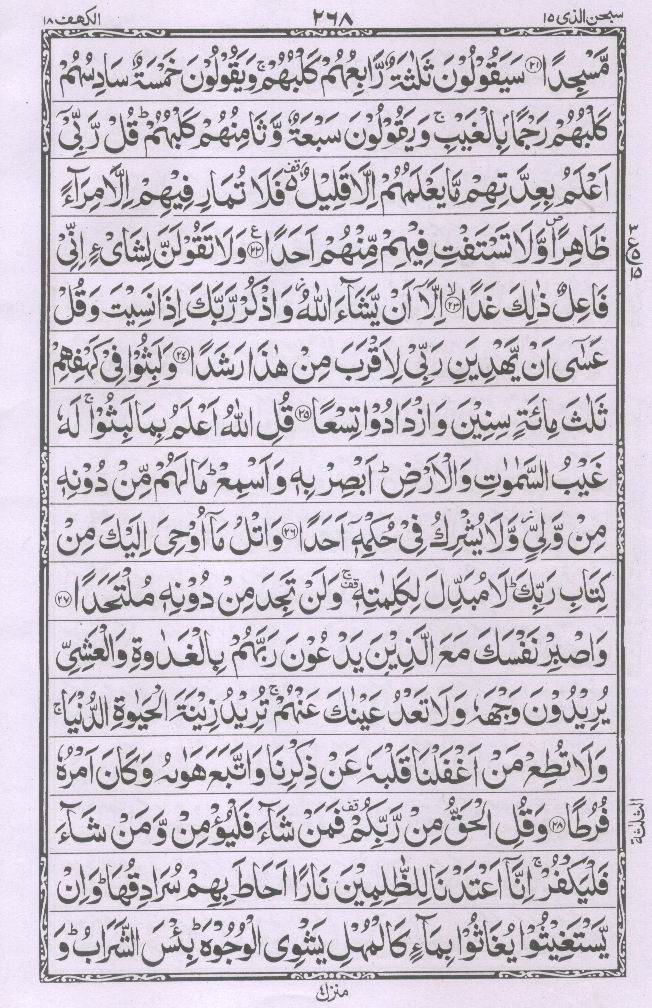 سبحن الذی ۱۵
۲۶۸
الكهف ۱۸
مَّسْجِدًا ﴿۲۱﴾ سَيَقُوْلُوْنَ ثَلٰثَةٌ رَّابِعُهُمْ كَلْبُهُمْ ۚ وَيَقُوْلُوْنَ خَمْسَةٌ سَادِسُهُمْ
كَلْبُهُمْ رَجْمًۢا بِالْغَيْبِ ۚ وَيَقُوْلُوْنَ سَبْعَةٌ وَّثَامِنُهُمْ كَلْبُهُمْ ؕ قُلْ رَّبِّیْۤ
اَعْلَمُ بِعِدَّتِهِمْ مَّا يَعْلَمُهُمْ اِلَّا قَلِيْلٌ ۵ قف فَلَا تُمَارِ فِيْهِمْ اِلَّا مِرَآءً
ظَاهِرًا ص وَّلَا تَسْتَفْتِ فِيْهِمْ مِّنْهُمْ اَحَدًا ﴿۲۲﴾ ع وَلَا تَقُوْلَنَّ لِشَایْءٍ اِنِّیْ
فَاعِلٌ ذٰلِكَ غَدًا ﴿۲۳﴾ لا اِلَّاۤ اَنْ يَّشَآءَ اللّٰهُ ز وَاذْكُرْ رَّبَّكَ اِذَا نَسِيْتَ وَقُلْ
عَسٰۤی اَنْ يَّهْدِيَنِ رَبِّیْ لِاَقْرَبَ مِنْ هٰذَا رَشَدًا ﴿۲۴﴾ وَلَبِثُوْا فِیْ كَهْفِهِمْ
ثَلٰثَ مِائَةٍ سِنِيْنَ وَازْدَادُوْا تِسْعًا ﴿۲۵﴾ قُلِ اللّٰهُ اَعْلَمُ بِمَا لَبِثُوْا ۚ لَهٗ
غَيْبُ السَّمٰوٰتِ وَالْاَرْضِ ؕ اَبْصِرْ بِهٖ وَاَسْمِعْ ؕ مَا لَهُمْ مِّنْ دُوْنِهٖ
مِنْ وَّلِیٍّ ز وَّلَا يُشْرِكُ فِیْ حُكْمِهٖۤ اَحَدًا ﴿۲۶﴾ وَاتْلُ مَاۤ اُوْحِیَ اِلَيْكَ مِنْ
كِتَابِ رَبِّكَ ؕ لَا مُبَدِّلَ لِكَلِمٰتِهٖ ۚ قف وَلَنْ تَجِدَ مِنْ دُوْنِهٖ مُلْتَحَدًا ﴿۲۷﴾
وَاصْبِرْ نَفْسَكَ مَعَ الَّذِيْنَ يَدْعُوْنَ رَبَّهُمْ بِالْغَدٰوةِ وَالْعَشِیِّ
يُرِيْدُوْنَ وَجْهَهٗ وَلَا تَعْدُ عَيْنٰكَ عَنْهُمْ ۚ تُرِيْدُ زِيْنَةَ الْحَيٰوةِ الدُّنْيَا ۚ
وَلَا تُطِعْ مَنْ اَغْفَلْنَا قَلْبَهٗ عَنْ ذِكْرِنَا وَاتَّبَعَ هَوٰىهُ وَكَانَ اَمْرُهٗ
فُرُطًا ﴿۲۸﴾ وَقُلِ الْحَقُّ مِنْ رَّبِّكُمْ قف فَمَنْ شَآءَ فَلْيُؤْمِنْ وَّمَنْ شَآءَ
فَلْيَكْفُرْ ۚ اِنَّاۤ اَعْتَدْنَا لِلظّٰلِمِيْنَ نَارًا اَحَاطَ بِهِمْ سُرَادِقُهَا ؕ وَاِنْ
يَّسْتَغِيْثُوْا يُغَاثُوْا بِمَآءٍ كَالْمُهْلِ يَشْوِی الْوُجُوْهَ ؕ بِئْسَ الشَّرَابُ ؕ وَ
الثلثة
منزل ۴